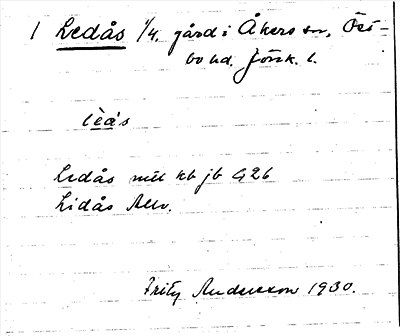 1 Ledås 1/4. gård i Åkers sn, Öst-
bo hd. Jönk. l.
lèȧ́s
Ledås mtl kb jb G26
Lidås Allm.
Fritz Andersson 1930.